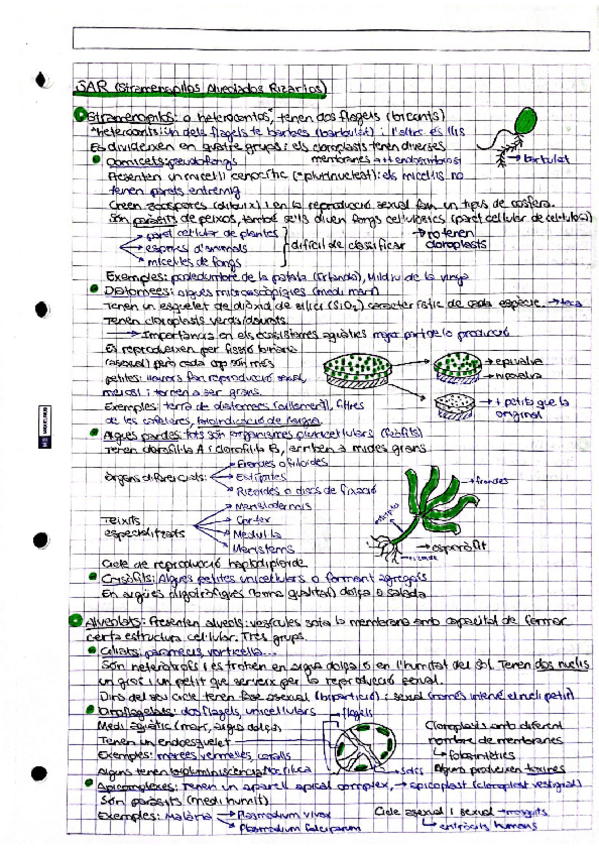 SAR (Stramenopilos Alveolados Rizarios)
Stramenopilos: o heterocontos*, tenen dos flagels (biconts)
*heteroconts: un dels flagels te barbes (barbulat) i l'altre és llis
Es divideixen en quatre grups i els cloroplasts tenen diverses
membranes → endosimbiosi
→ barbulat
Oomicets: pseudofongs
Presenten un miceli cenocític (*plurinucleat): els micelis no
tenen parets entremig
Creen zoospores (dibuix) i en la reproducció sexual fan un tipus de oosfera.
Són paràsits de peixos, també se'ls diuen fongs cel·lulòsics (paret cel·lular de cel·lulosa)
→ paret cel·lular de plantes
→ espores d'animals
→ micelis de fongs
difícil de classificar
→ no tenen
cloroplasts
Exemples: de la patata (Irlanda), Mildiu de la vinya
Diatomees: algues microscòpiques (medi marí)
Tenen un esquelet de diòxid de silici (SiO2) característic de cada espècie. → teca
Tenen cloroplasts verds/daurats.
→ Importància en els ecosistemes aquàtics major part de la producció
Es reprodueixen per fissió binària
(asexual) però cada cop són més
petites: llavors fan reproducció sexual,
meiosi i tornen a ser grans.
→ epivalva
→ hipovalva
→ + petita que la
original
Exemples: terra de diatomees (aïllament), filtres
de les cafeteres,
Algues pardes: tots són organismes pluricel·lulars (feòfits)
Tenen clorofil·la A i clorofil·la B, arriben a mides grans
Òrgans diferencials:
→ Frondes o filoides
→ Estípites
→ Rizoides o discs de fixació
→ frondes
estípite
→ esporòfit
Teixits
especialitzats
→ Meristodermis
→ Còrtex
→ Medul·la
→ Meristems
Cicle de reproducció haplodiploide.
Crisòfits: Algues petites unicel·lulars o formant agregats
En aigües oligotròfiques (bona qualitat) dolça o salada
Alveolats: Presenten alvèols: vesícules sota la membrana amb capacitat de formar
certa estructura cel·lular. Tres grups.
Ciliats: paramecis, vorticella...
Són heteròtrofs i es troben en aigua dolça o en l'humitat del sòl. Tenen dos nuclis
un gros i un petit que serveix per la reproducció sexual.
Dins del seu cicle tenen fase asexual (bipartició) i sexual (només intervé el nucli petit)
Dinoflagelats: dos flagels, unicel·lulars
→ flagels
Medi aquàtic (marí, aigua dolça)
Tenen un endoesquelet
Exemples: marees vermelles, coralls
Alguns tenen bioluminiscència
→ solcs
Cloroplasts amb diferent
nombre de membranes
↳ fotosintètics
Alguns produeixen toxines
Apicomplexes: Tenen un aparell apical complex, → apicoplast (cloroplast vestigial)
Són paràsits (medi humit)
Exemples: Malària
→ Plasmodium vivax
→ Plasmodium falciparum
Cicle asexual i sexual → mosquits
↳ eritròcits humans